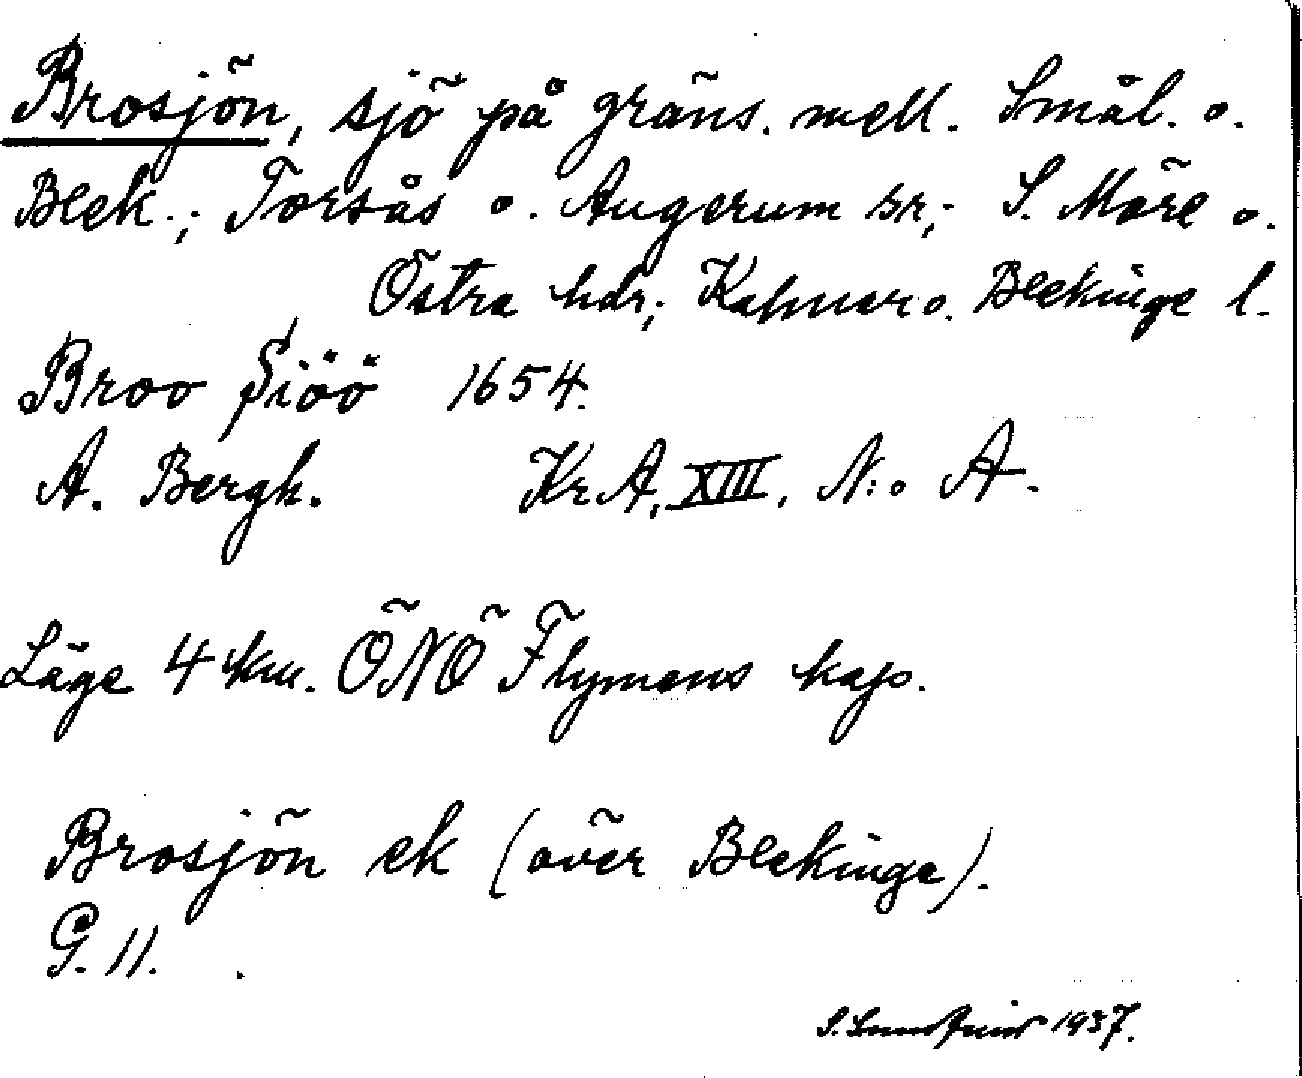 Brosjön, sjö på gräns. mell. Smål. o.
Blek.; Torsås o. Augerum sr; S. Möre o.
Östra hdr; Kalmar o. Blekinge l.
Broo Siöö 1654.
A. Bergh. Kr.A, XIII, N:o A.
Läge 4 km. ÖNÖ Flymens kap.
Brosjön ek (över Blekinge).
G. 11.
1937.